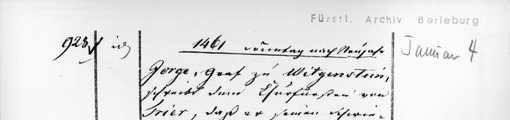 Fürstl. Archiv Berleburg
923. id. 1461 Sonntag nach Neujahr Januar 4
Gorge, Graf zu Witgenstein,
schreibt dem Churfürsten von
Trier, daß er seinen Schwie-